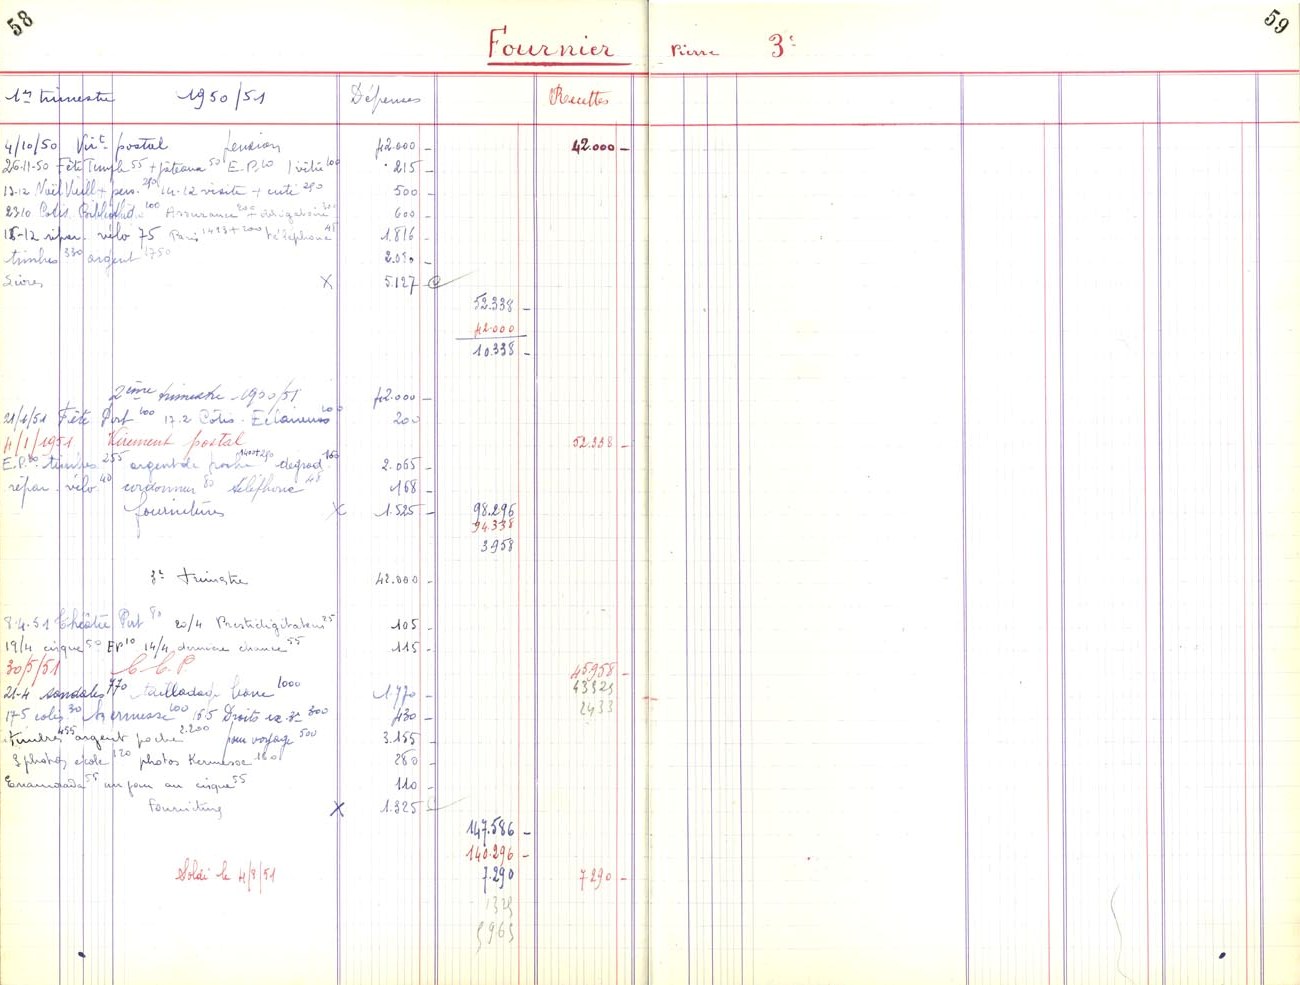 58
59
Fournier Pierre 3e
1er trimestre 1950/51 Dépenses Recettes
4/10/50 Virt postal pension 42.000 42.000
26-11-50 Fête Temple 55 + gâteaux 50 E.P. 10 100 215
17-12 Noël Vieill + 14-12 visite + cuté 250 500
23 10 Cotis. 100 Assurance 200 + obligatoire 300 600
18-12 répar. vélo 75 Paris 1423 + 200 téléphone 45 1.816
timbres 330 argent 1750
Livres X 5.127
52.338
42.000
10.338
2ème trimestre 1950/51 42.000
21/1/51 Fête Port 100 17.2 Cotis. Eclaireurs 100 200
4/1/1951 Virement postal 52.338
timbres 255 argent de poche dégrad. 2.065
répar. vélo 40 cordonnier 80 téléphone 45 168
fournitures X 1.525 98.296
94.338
3958
3e trimestre 42.000
8-4-51 Théâtre Port 80 20/4 Prestidigitateur 25 105
19/4 cirque 50 EP 10 14/4 dernière chance 55 115
30/5/51 C.C.P. 45958
21-4 sandales 770 1000 1.770 43525
2433
17-5 cotis. 30 kermesse 100 16.5 Droits ex. 300 430
timbres 455 argent poche 2.200 pour voyage 500 3.155
3 photos école 120 photos Kermesse 160 280
Enamorada 55 un jour au cirque 55 110
Fournitures X 1.325
147.586
140.296
Soldé le 4/8/51 7.290 7290
1325
5965